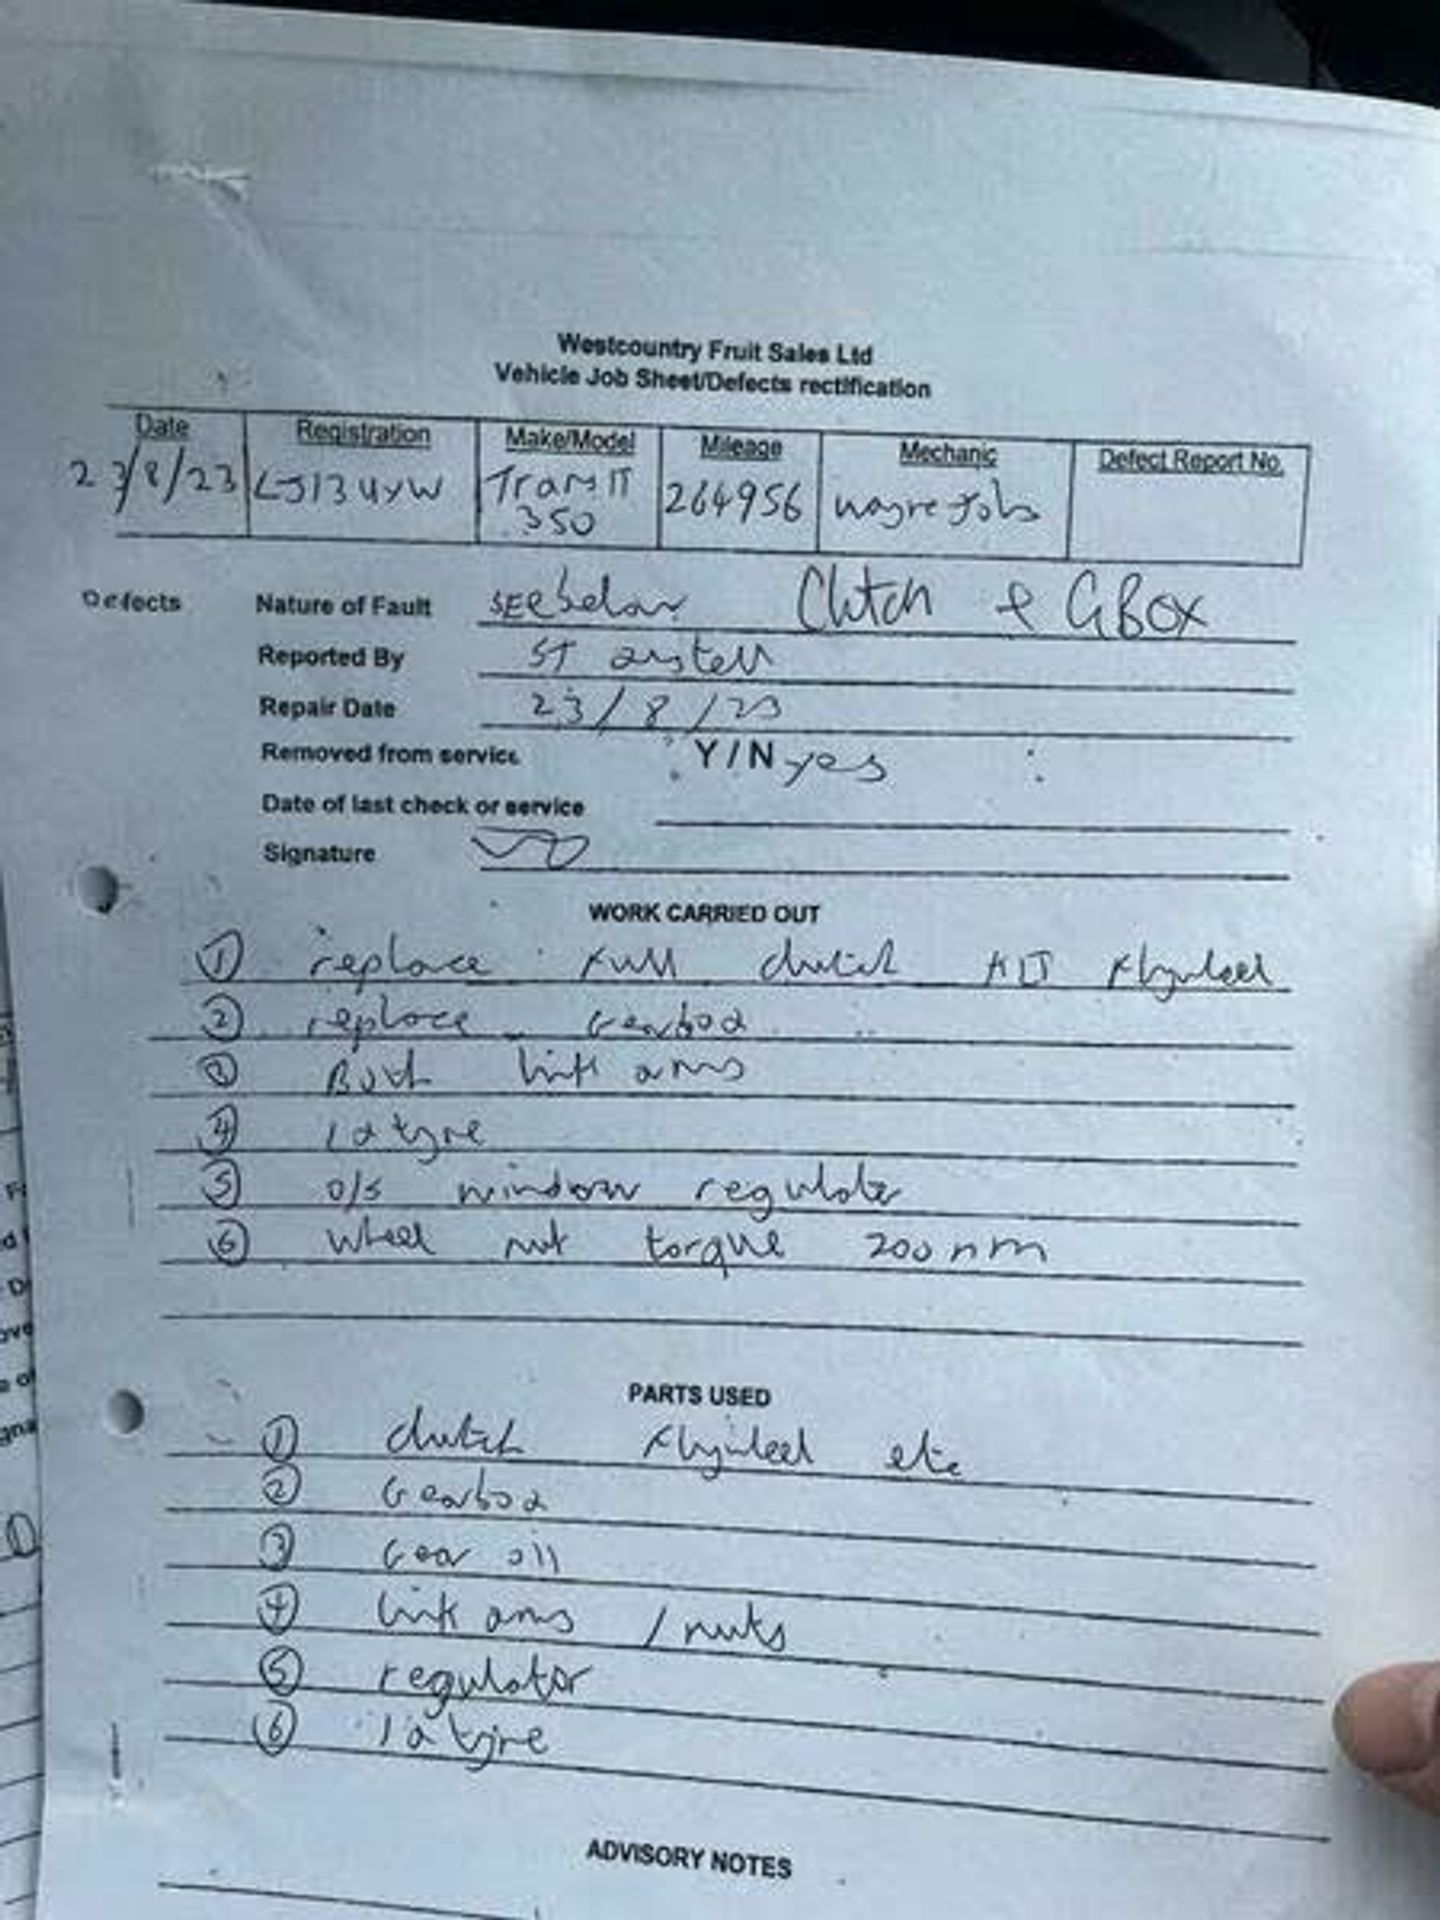 Westcountry Fruit Sales Ltd
Vehicle Job Sheet/Defects rectification
Date Registration Make/Model Mileage Mechanic Defect Report No.
23/8/23 LJ13 UYW TransIT 350 264956 wayne
Defects Nature of Fault SEE below Clutch & GBOX
Reported By ST austell
Repair Date 23/8/23
Removed from service Y/N yes
Date of last check or service
Signature
WORK CARRIED OUT
① replace full clutch KIT flywheel
② replace Gearbox
③ Both link arms
④ 1x tyre
⑤ o/s window regulator
⑥ wheel nut torque 200nm
PARTS USED
① clutch flywheel etc
② Gearbox
③ Gear oil
④ link arms / nuts
⑤ regulator
⑥ 1x tyre
ADVISORY NOTES